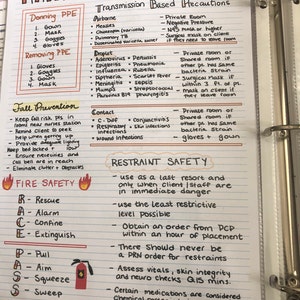 Donning PPE
1. Gown
2. Mask
3. Goggles
4. Gloves
Removing PPE
1. Gloves
2. Goggles
3. Gown
4. Mask
Fall Prevention
- Keep fall risk pts in
room near nurses station
- Remind client to press
help when getting up
- Provide adequate lighting
- Keep bed locked + low
- Ensure necessities and
call bell are in reach
- Eliminate clutter + obstacles
FIRE SAFETY
R - Rescue
A - Alarm
C - Confine
E - Extinguish
P - Pull
A - Aim
S - Squeeze
S - Sweep
Transmission Based Precautions
Airborne
- Measles
- Chickenpox (varicella)
- Pulmonary TB
- Disseminated varicella zoster
- Private Room
- Negative Pressure
- N95 mask or higher
- Surgical mask on client
if they need to leave room
Droplet
- Adenovirus
- Epiglottitis
- Influenza
- Meningitis
- Mumps
- Parvovirus B19
- Pertussis
- Pneumonia
- Rubella
- Scarlet Fever
- Sepsis
- Strep
- pharyngitis
- Private room or
Shared room if
other pt has same
bacteria strain
- Surgical mask if
within 3 ft of pt
- mask on client if
they leave room
Contact
- C. Diff
- Pediculosis
- Respiratory infections
- Wound Infections
- Conjunctivitis
- Skin infections
- Private room or
Shared room if
other pt has same
bacteria strain
- gloves + gown
RESTRAINT SAFETY
- use as a last resort and
only when client/staff are
in immediate danger
- use the least restrictive
level possible
- Obtain an order from PCP
within an hour of placement
- There should never be
a PRN order for restraints
- Assess vitals, skin integrity
and neuro checks Q15 mins.
- Certain medications are considered